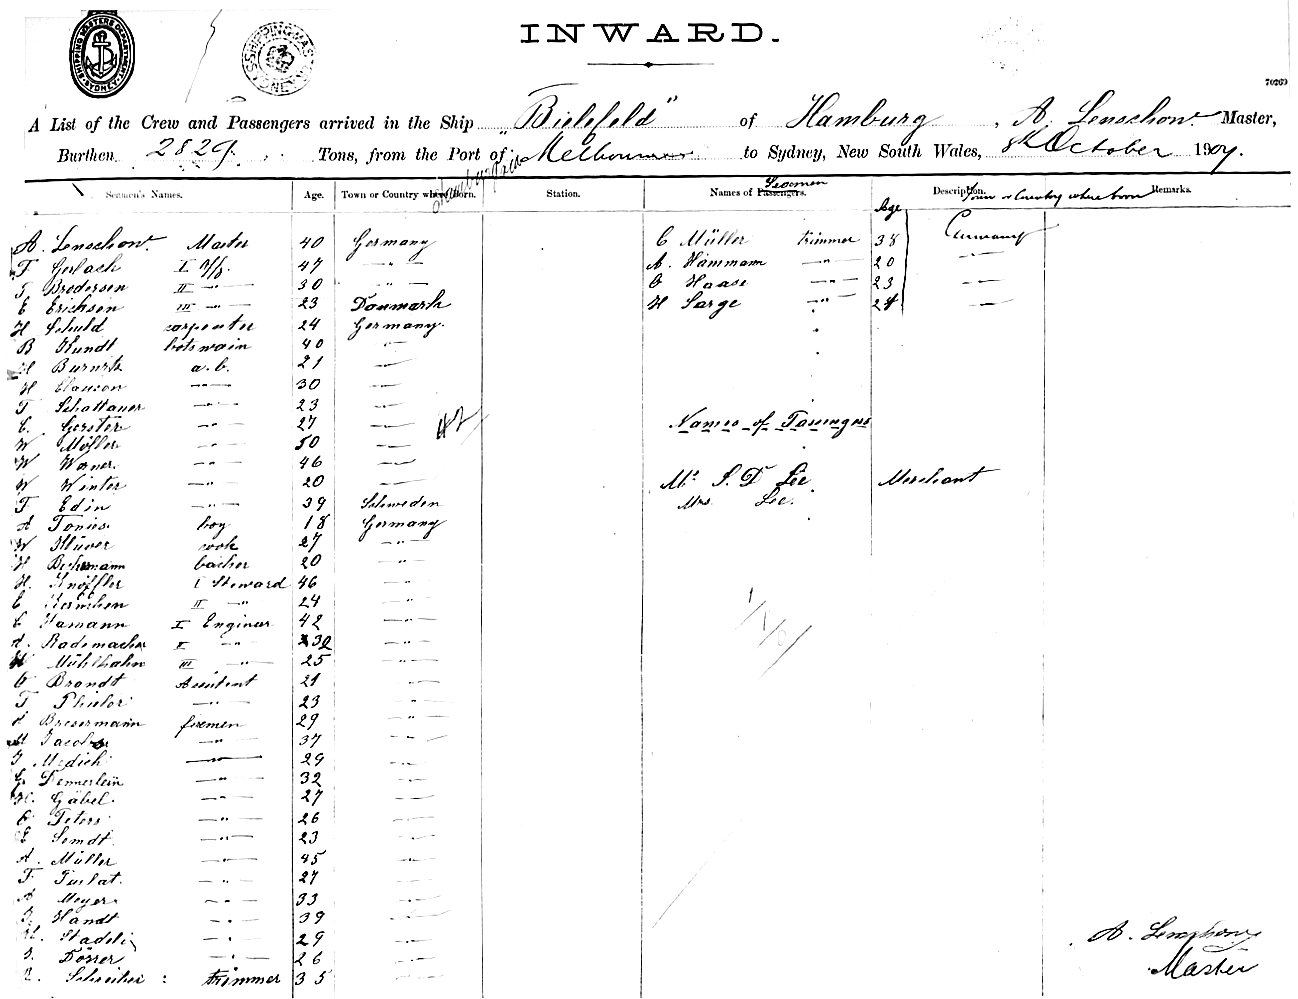 SHIPPING MASTERS DEPARTMENT SYDNEY
SHIPPING MAS SYDNEY
INWARD.
70269
A List of the Crew and Passengers arrived in the Ship "Bielefeld" of Hamburg, A. Lenschow Master,
Burthen 2829 Tons, from the Port of Hamburg via Melbourne to Sydney, New South Wales, October 1907.
Seamen's Names. Age. Town or Country where Born. Station. Names of Passengers. Seamen Age Description. Town or Country where born Remarks.
A. Lenschow Master 40 Germany C Müller trimmer 38 Germany
F Gerlach I Off. 47 —"— A. Hammann —"— 20 —"—
Brodersen II —"— 30 —"— O Haase —"— 23 —"—
E Erichsen III —"— 23 Danmark H Sarge —"— 24 —"—
H Schuld carpenter 24 Germany.
B Kundt botswain 40 —"—
H a.b. 21 —"—
H Clauson —"— 30 —"—
F Schattauer —"— 23 —"—
C. Gerster —"— 27 —"— 42 Names of Passengers
W Möller —"— 50 —"—
W Werner. —"— 46 —"—
W Winter —"— 20 —"— Mr. S. D Lee Merchant
F Edin —"— 39 Schweden Mrs Lee.
A Tonies boy 18 Germany
W Stüver cook 27 —"—
H bacher 20 —"—
H. Knöffler I Steward 46 —"—
C II —"— 24 —"—
C Hamann I Enginer 42 —"—
A. Rademacher I —"— 32 —"—
W Mühlhahn III —"— 25 —"—
O Brandt Assistent 21 —"—
F —"— 23 —"—
firemen 29 —"—
M —"— 37 —"—
—"— 29
C. Demmerlein —"— 32
H. Gäbel. —"— 27
O Peters —"— 26
E Semdt —"— 23
A. Müller —"— 45
F —"— 27
A Meyer —"— 33
Handt —"— 39
—"— 29 A. Lenschow
Dörrer —"— 26
Schreiber : trimmer 35 Master